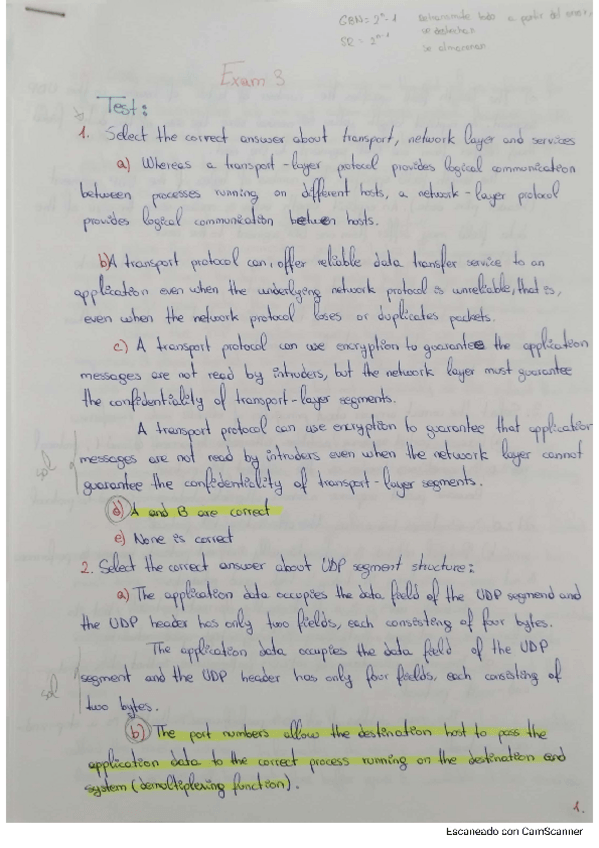 GBN = 2^n - 1 a partir del error.
SR = 2^n-1 se almacenan
Exam 3
Test:
1. Select the correct answer about transport, network layer and services
a) Whereas a transport-layer potocol provides logical communication
between processes running on different hosts, a network-layer protocol
provides logical communication between hosts.
b) A transport protocol can, offer reliable data transfer service to an
application even when the underlying network protocol is unreliable, that is,
even when the network protocol loses or duplicates packets.
c) A transport protocol can use encryption to guarantee the application
messages are not read by intruders, but the network layer must guarantee
the confidentiality of transport-layer segments.
A transport protocol can use encryption to guarantee that application
sol messages are not read by intruders even when the network layer cannot
guarantee the confidentiality of transport-layer segments.
d) A and B are correct
e) None is correct
2. Select the correct answer about UDP segment structure:
a) The application data occupies the data field of the UDP segmend and
the UDP header has only two fields, each consisting of four bytes.
The application data occupies the data field of the UDP
sol segment and the UDP header has only four fields, each consisting of
two bytes.
b) The port numbers allow the destination host to pass the
application data to the correct process running on the destination end
system (demultiplexing function).
1.
Escaneado con CamScanner